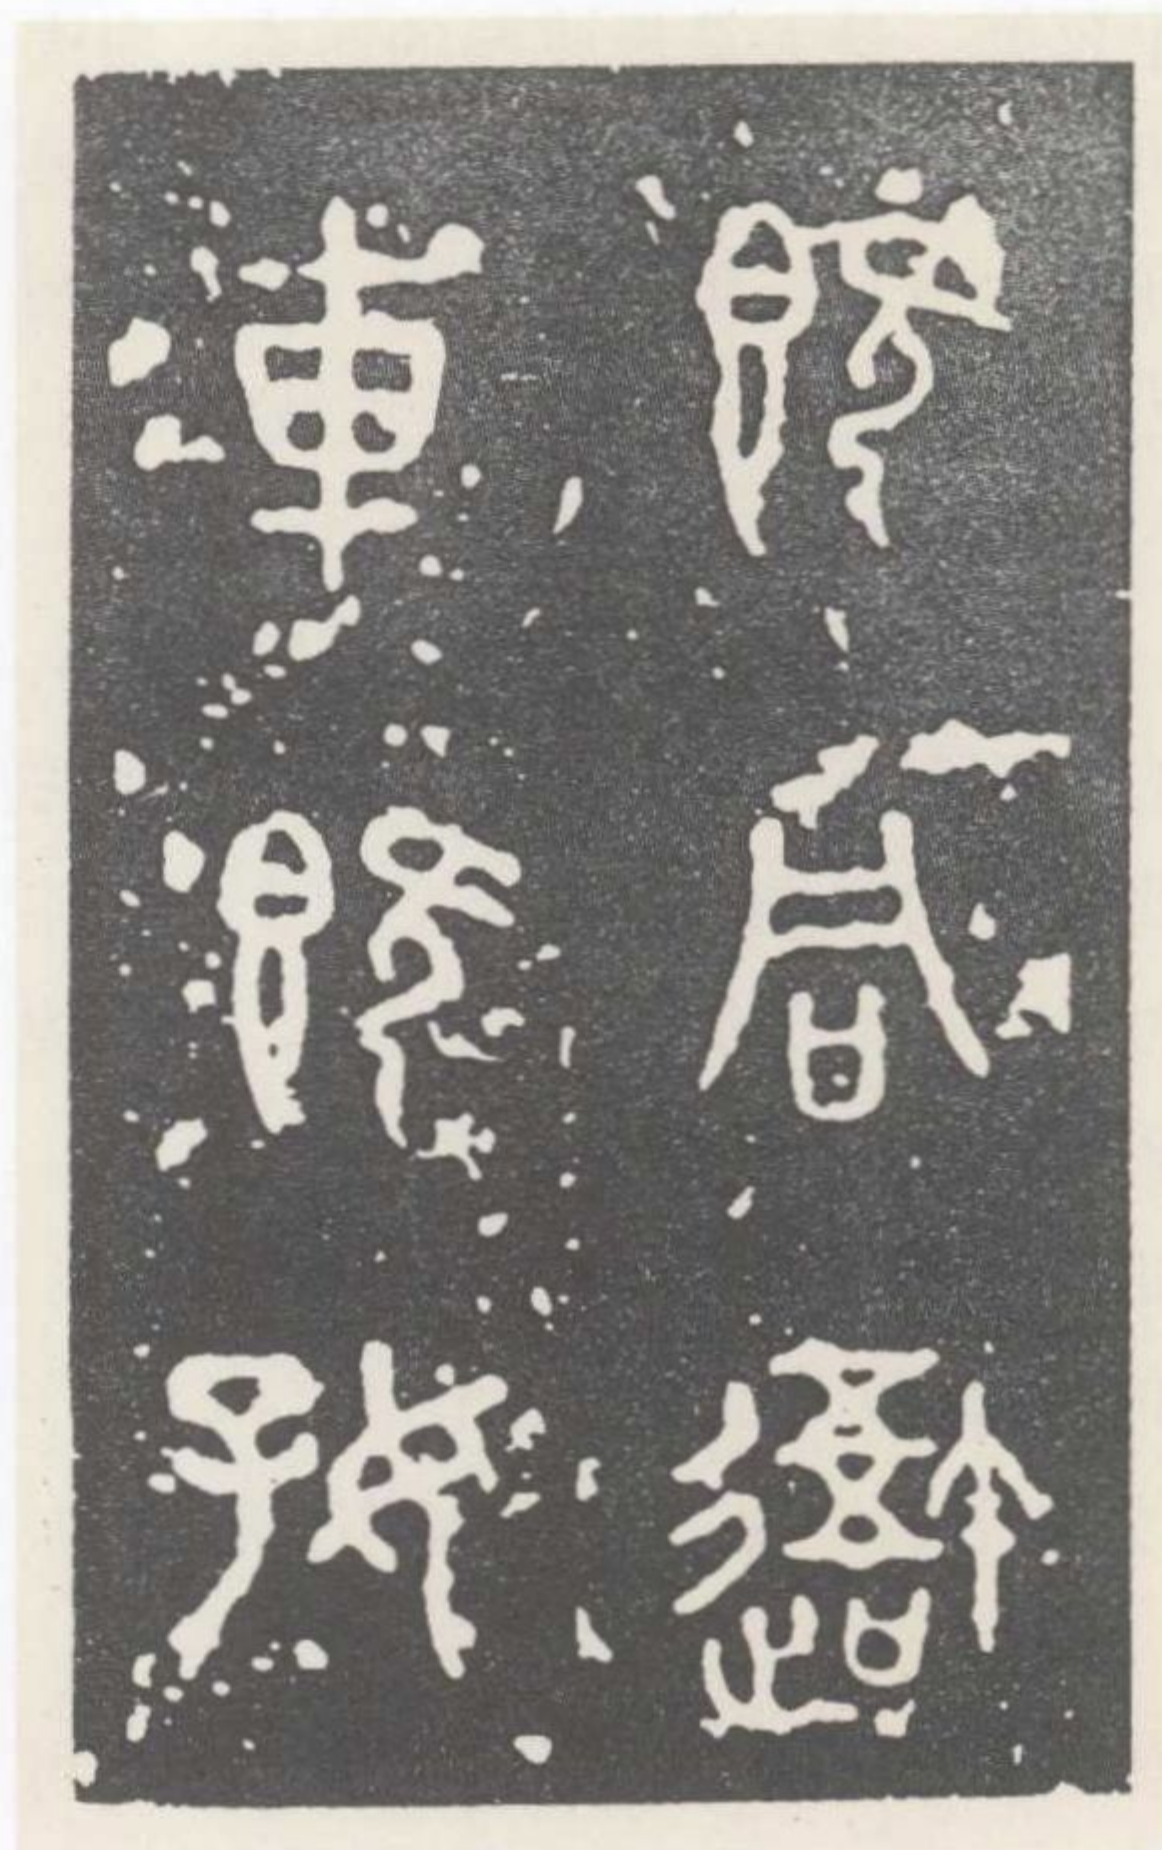 既同吾
車既好